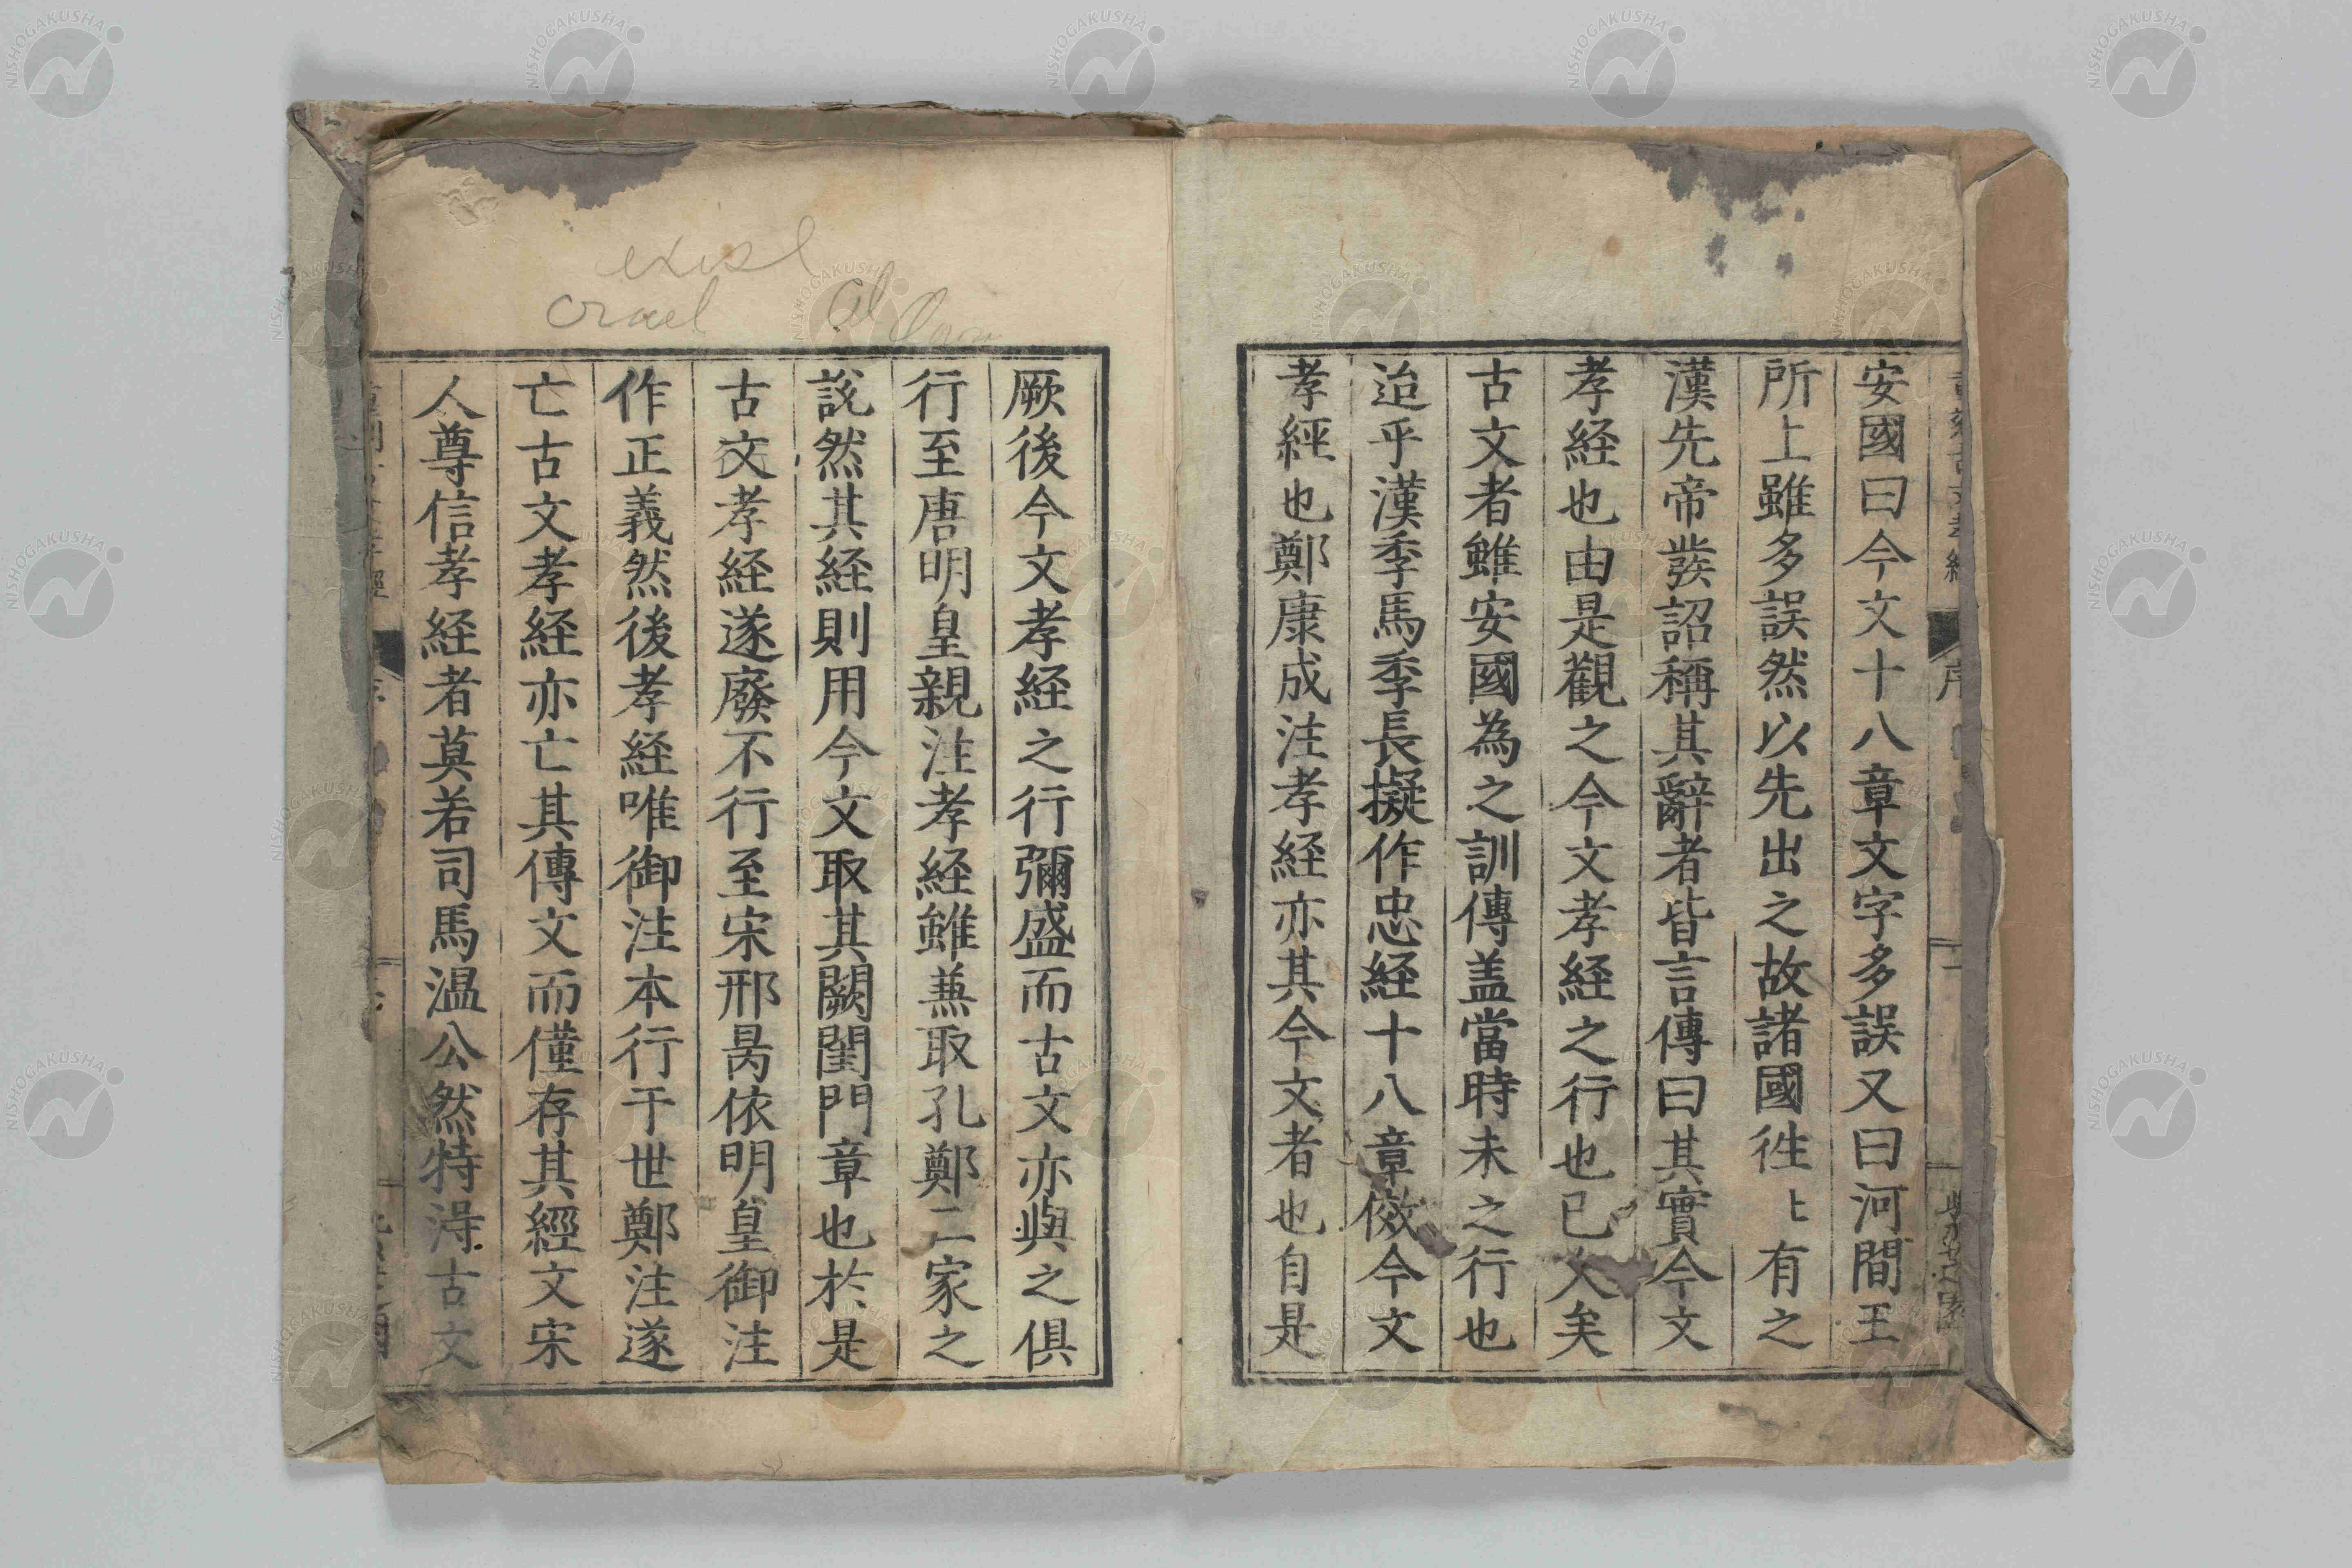 安國曰今文十八章文字多誤又曰河間王
所上雖多誤然以先出之故諸國徃〻有之
漢先帝發詔稱其辭者皆言傳曰其實今文
孝経也由是觀之今文孝経之行也已久矣
古文者雖安國為之訓傳盖當時未之行也
迨乎漢季馬季長擬作忠経十八章倣今文
孝經也鄭康成注孝経亦其今文者也自是
厥後今文孝経之行彌盛而古文亦與之俱
行至唐明皇親注孝経雖兼取孔鄭二家之
説然其経則用今文取其闕閨門章也於是
古文孝経遂廢不行至宋邢昺依明皇御注
作正義然後孝経唯御注本行于世鄭注遂
亡古文孝経亦亡其傳文而僅存其經文宋
人尊信孝経者莫若司馬温公然特淂古文
序
exist
NISHOGAKUSHA